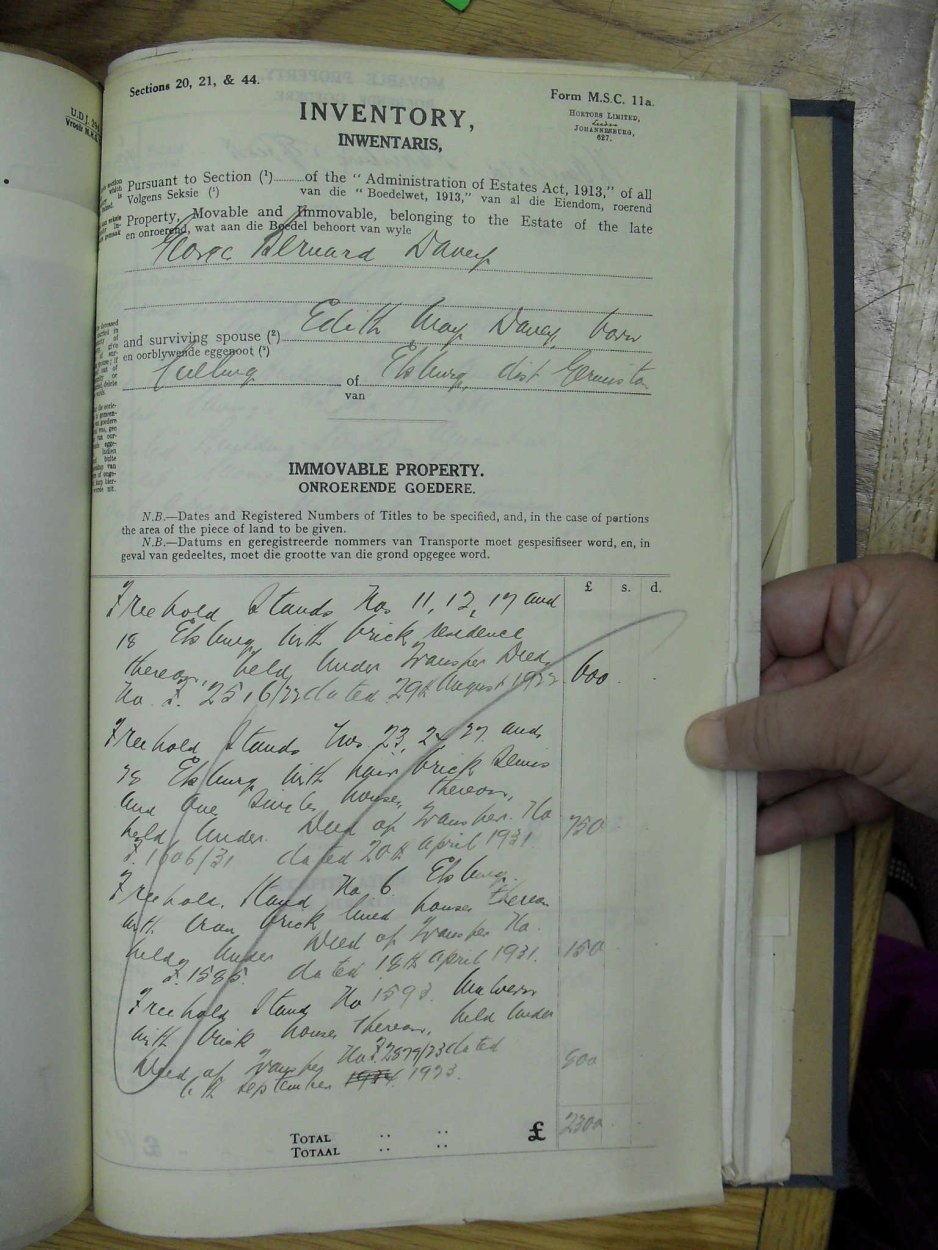 Sections 20, 21, & 44.
Form M.S.C. 11a.
HORTORS LIMITED,
JOHANNESBURG,
627.
INVENTORY,
INWENTARIS,
Pursuant to Section (¹)..........of the "Administration of Estates Act, 1913," of all
Volgens Seksie (¹) van die "Boedelwet, 1913," van al die Eiendom, roerend
Property, Movable and Immovable, belonging to the Estate of the late
en onroerend, wat aan die Boedel behoort van wyle
George Bernard Davey
and surviving spouse (²) Edith May Davey, born
en oorblywende eggenoot (²)
of Elsburg, dist Germiston
van
IMMOVABLE PROPERTY.
ONROERENDE GOEDERE.
N.B.—Dates and Registered Numbers of Titles to be specified, and, in the case of portions
the area of the piece of land to be given.
N.B.—Datums en geregistreerde nommers van Transporte moet gespesifiseer word, en, in
geval van gedeeltes, moet die grootte van die grond opgegee word.
£ s. d.
Freehold Stands Nos 11, 12, 17 and
18 Elsburg, with brick residence
thereon, held under Transfer Deed
No. F. 2516/22 dated 29th August 1922 600
Freehold Stands Nos 23, 24, 27 and
28 Elsburg with brick Semis
and one Single house, thereon,
held under Deed of Transfer No 750
F. 1606/31 dated 20th April 1931.
Freehold Stand No 6 Elsburg
with Iron brick lined house thereon
held under Deed of Transfer No. 150
F. 1585. dated 18th April 1931.
Freehold Stand No 1593 Malvern
with brick house thereon, held under
Deed of Transfer No F. 2879/23 dated 800
6th September 1923.
TOTAL .. .. £ 2300
TOTAAL .. ..